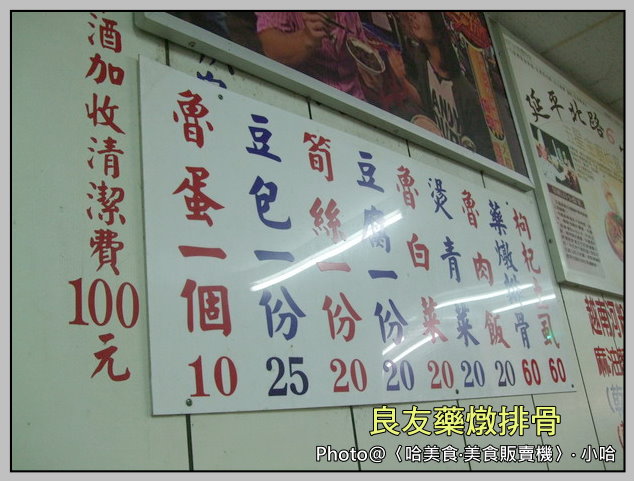 酒加收清潔費100元
枸杞土虱 60
藥燉排骨 60
魯肉飯 20
燙青菜 20
魯白菜 20
豆腐一份 20
筍絲一份 20
豆包一份 25
魯蛋一個 10
延平北路
越南河粉
麻油
良友藥燉排骨
Photo@〈哈美食‧美食販賣機〉‧小哈